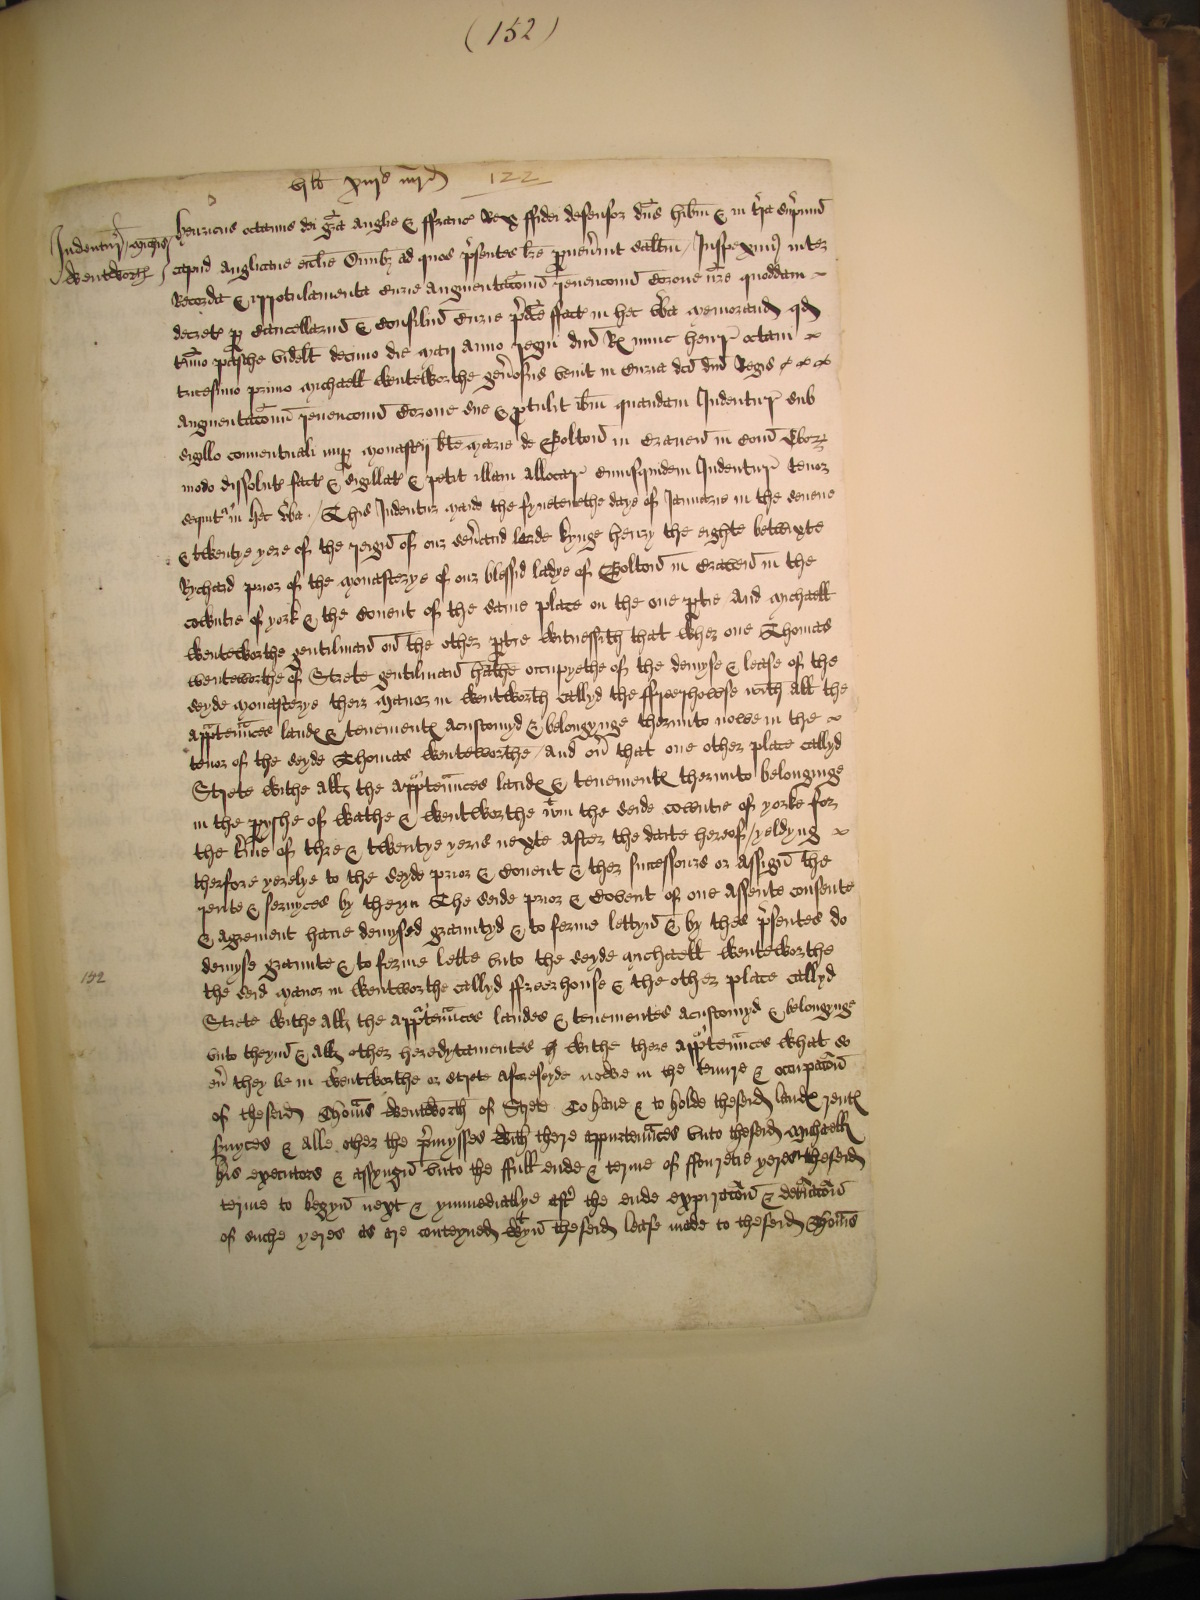 (152)
vj li xiijs iiijd 122
Indentur Mich̄is
Wentworth
Henricus octauus dei gr̄a Anglie & ffrance Rex ffidei defensor dn̄s Hib̄n & in t̄ra sup̄mū
caput Anglicane eccl̄ie Om̄ibȝ ad quos p̄sentes l̄re p̄uen̄int sal̄tm / Inspeximꝰ inter
Recorda & rotulamenta Curie Augmentac̄onū reuencionū Corone n̄re quoddam
decret p̱ Cancellariū & Consiliū Curie p̄dc̄e fact in hec v̄ba Memorand qd
t̄mio pasche videl̄t decimo die Maij Anno regni dn̄i R̄ nunc henr̄ octaui
tricesimo primo Michaell Wenteworthe gen̄osus venit in Curia dc̄i dn̄i Regis
Augmentac̄onū reuencionū Corone sue & p̱tulit ib̄m quandam Indentur̄ sub
sigillo conuentuali nup̱ Monastij b̄te Marie de Bolton in Crauen in Com̄ Ebor̄
modo dissolut fact & sigillat & petit illam allocar̄ Cuiusquidem Indentur̄ tenor
sequit in hec v̄ba / This Indentur made the fyuetenethe daye of Januarie in the seuene
& twentye yere of the reigne of our soūand lorde kynge henry the eighte betwixte
Rychard prior of the Monasterye of our blessid ladye of Bolton in Crauen in the
cowntie of york & the Couent of the same place on the one p̱tie And Michaell
Wenteworthe gentilman on the other p̱tie witnessith that wher one Thomas
wenteworthe of Strete gentilman hathe occupyethe of the demyse & lease of the
seyde monasterye their Manor in wentworth callyd the ffreerhowse with all the
app̱ten̄nces land & tenement acustomyd & belongynge therunto nowe in the
tenor of the seyde Thomas Wenteworthe / And on̄ that one other place callyd
Strete withe all the app̱ten̄nces land & tenement therunto belonginge
in the p̱yshe of Wathe & wentworthe w̄in the seide cowntie of yorke for
the t̄me of thre & twentye yeris nexte after the date hereof / yeldyng
therfore yerelye to the seyde prior & Couent & ther successours or assigū the
rente & seruyces by theym The seide prior & Couent of one assente consente
& agrement haue demysed grauntyd & to ferme lettyn & by thes p̄sentes do
demyse graunte & to ferme lette vnto the seyde Michaell Wenteworthe
the seid Manor in Wentworthe callyd ffreerhouse & the other place callyd
152
Strete withe all the app̱ten̄nces landes & tenementes acustomyd & belongynge
vnto theym & all other heredytamentes withe there app̱ten̄nces what so
eū they be in Wentworthe or Strete aforeseyde nowe in the tenure & occupac̄on
of theseid Thom̄s Wentworth of Strete To haue & to holde theseid land rent
s̄uyces & alle other the p̄mysses with there appurten̄nces vnto theseid Michaell
his executors & assyngn̄ vnto the ffull ende & terme of ffouretie yeres theseid
terme to begyn̄ next & ymmediatlye aft̄ the ende expirac̄on & det̄mac̄on
of suche yeres as are conteyned w̄yn theseid lease made to theseid Thom̄s